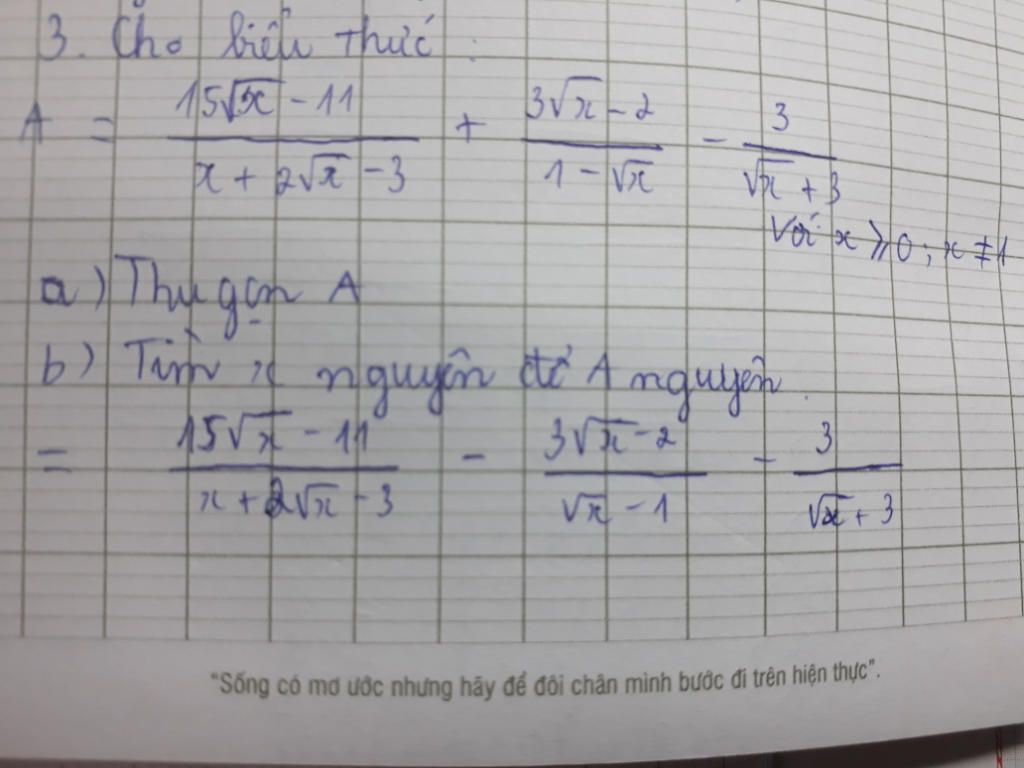 3. Cho biểu thức:
A = (15√x - 11)/(x + 2√x - 3) + (3√x - 2)/(1 - √x) - 3/(√x + 3)
Với x ⩾ 0 ; x ≠ 1
a) Thu gọn A
b) Tìm x nguyên để A nguyên.
= (15√x - 11)/(x + 2√x - 3) - (3√x - 2)/(√x - 1) - 3/(√x + 3)
"Sống có mơ ước nhưng hãy để đôi chân mình bước đi trên hiện thực".